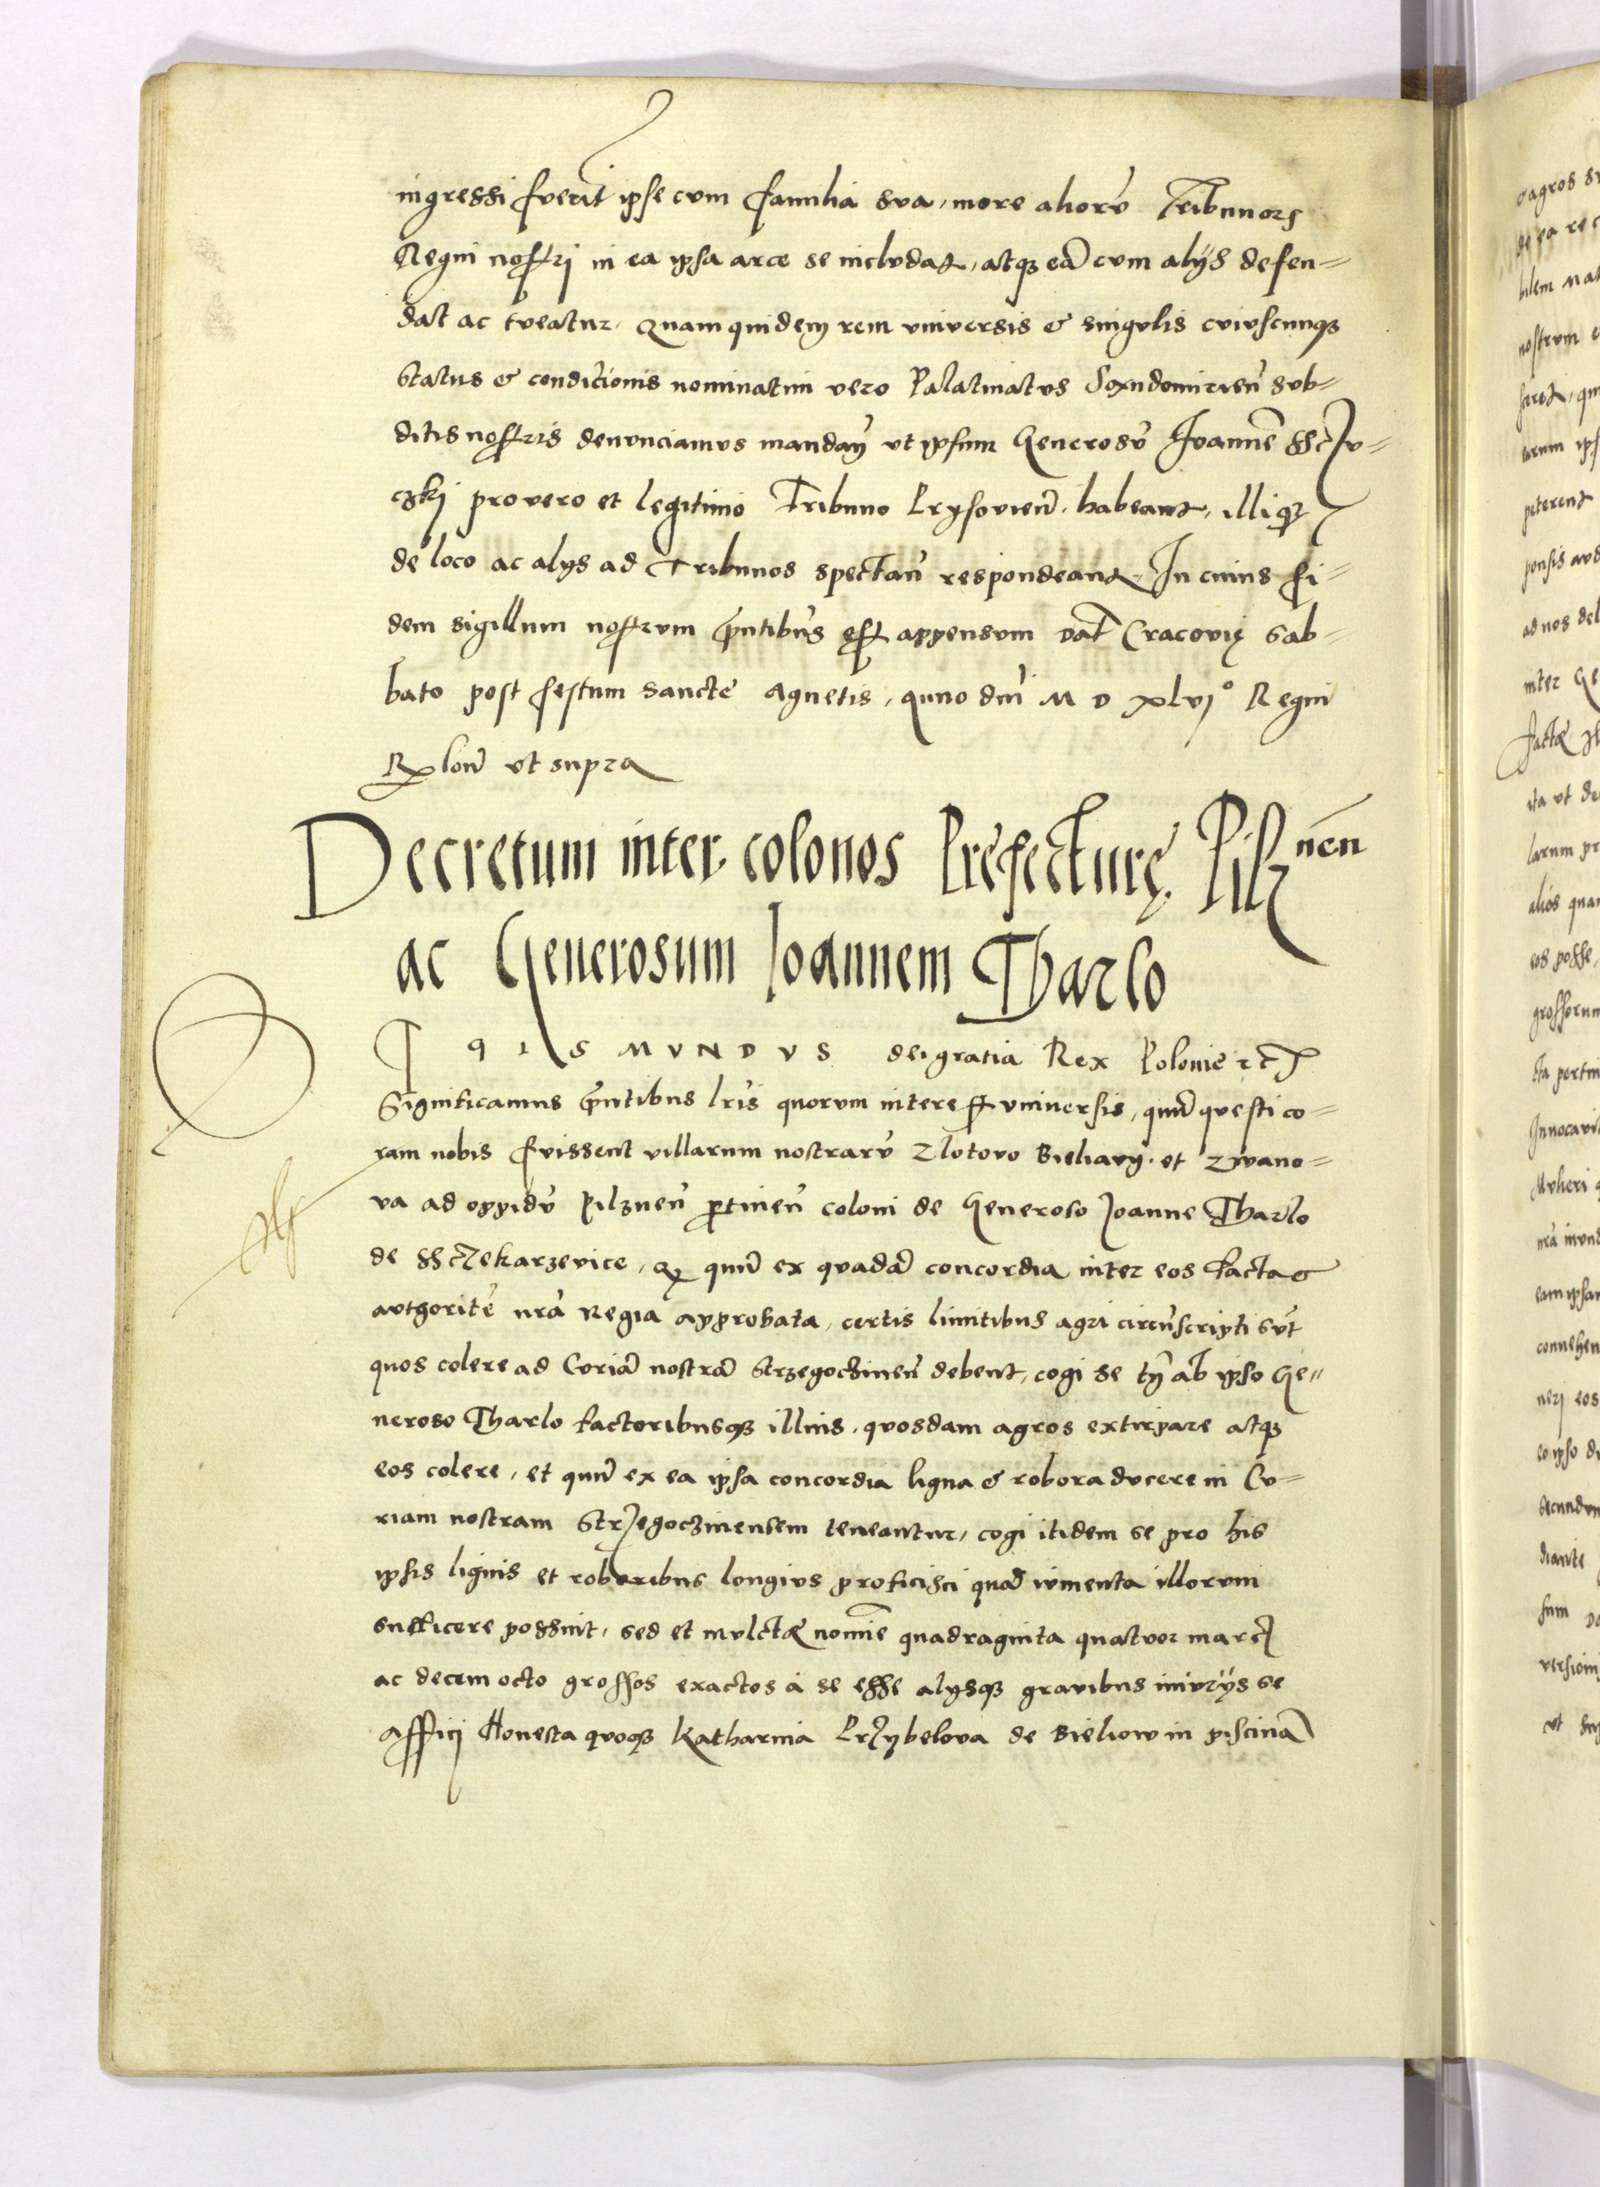 ingressi fuerit ipse cum familia sua, more aliorũ Tribunorꝝ
Regni nostri in ea ipsa arce se includat, atqꝫ eã cum alijs defen=
dat ac tueatur, Quamquidem rem universis & singulis cuiuscunqꝫ
Status & condicionis nominatim vero Palatinatus Sandomirieñ sub=
ditis nostris denunciamus mandam̃ ut ipsum Generosũ Ioannẽ
czkj pro vero et legitimo Tribuno habeant, illiqꝫ
de loco ac alijs ad Tribunos spectañ respondeant. In cuius fi=
dem sigillum nostrum p̃ntibus est appensum Dat̃ Cracovię Sab=
bato post festum sancte Agnetis, Anno dñi M D xlvj° Regni
ut supra
Decretum inter colonos Prefecturę Pilznen̄
ac Generosum Ioannem Tharlo
SIGISMVNDVS dei gratia Rex Polonie ꝛcꝫ
Significamus p̃ntibus lr̃is quorum interest universis, quũ questi co=
ram nobis fuissent villarum nostrarũ Zlotovo Bieliavy. et Zwano=
va ad oppidũ Pilzneñ ꝑtineñ coloni de Generoso Joanne Tharlo
de Sczekarzevice, ꝙ quũ ex quadã concordia inter eos facta &
authoritẽ nr̃a Regia approbata, certis limitibus agri circũscripti sũt
quos colere ad Curiã nostrã Strzegoczineñ debent, cogi se tñ ab ipso Ge=
neroso Tharlo factoribusqꝫ illius, quosdam agros extirpare atqꝫ
eos colere, et quũ ex ea ipsa concordia ligna & robora ducere in Cu=
riam nostram Strzegoczinensem teneantur, cogi itidem se pro his
ipsis lignis et roboribus longius proficisci quã iumenta illorum
sufficere possint, sed et mulctæ nomĩe quadraginta quatuor marcꝫ
ac decem octo grossos exactos à se esse alijsqꝫ gravibus iniurijs se
Affici Honesta quoqꝫ Katharina Przybelova de Bieliow in piscinã